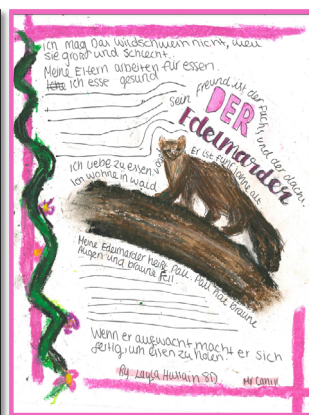 Ich mag Das wildschwein nicht, weil
sie groß und schlecht.
Meine Eltern arbeiten für essen.
Ich esse gesund
sein freund ist der fuchs und der dachs.
DER
Edelmarder
Er ist fünf Jahre alt
Ich liebe zu essen.
Ich wohne in wald
Meine Edelmarder heißt Paul. Paul hat braune
Augen und braune fell.
Wenn er aufwacht macht er sich
fertig, um essen zu holen.
By Layla Hussain 8D
Mr